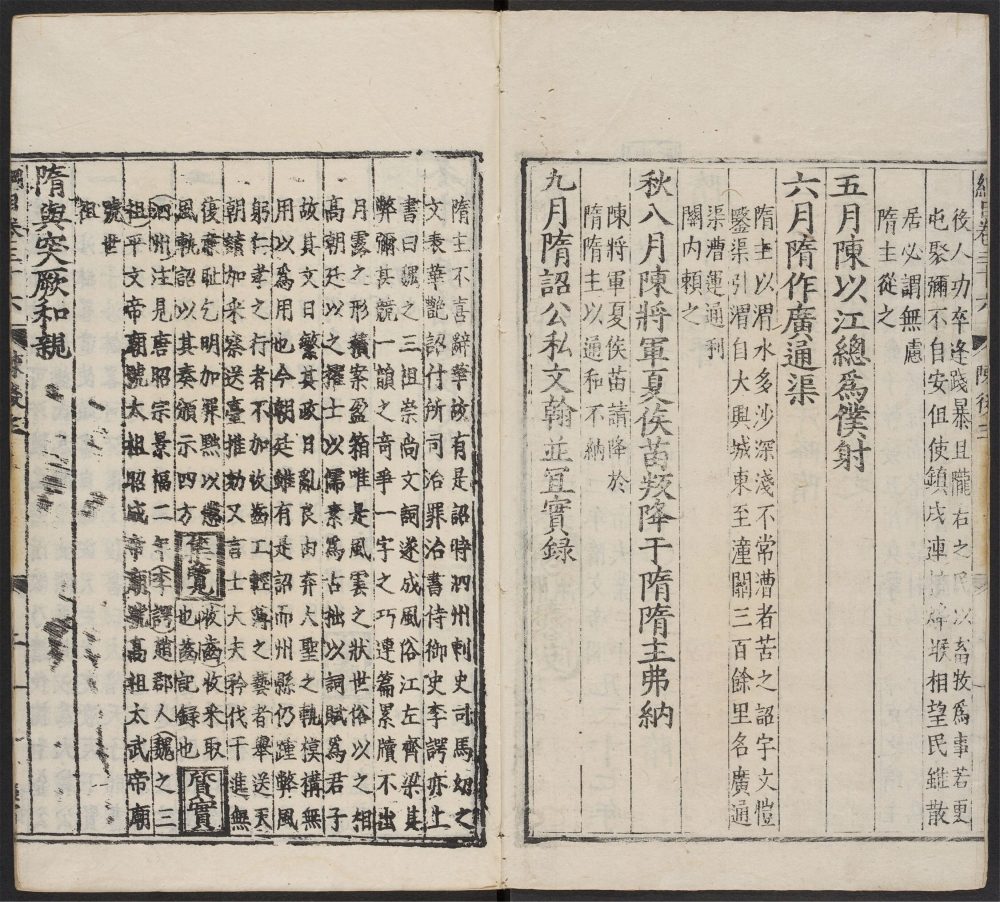 綱目卷三十六 陳後主
後人功卒逢踐暴且隴右之民以畜牧爲事若更
屯聚彌不自安但使鎮戍連接烽堠相望民雖散
居必謂無慮
隋主從之
五月陳以江總爲僕射
六月隋作廣通渠
隋主以渭水多沙深淺不常漕者苦之詔宇文愷
鑿渠引渭自大興城東至潼關三百餘里名廣通
渠漕運通利
關內賴之
秋八月陳將軍夏侯苗叛降于隋隋主弗納
陳將軍夏侯苗請降於
隋隋主以通和不納
九月隋詔公私文翰並宜實録
隋主不喜辭華故有是詔時泗州刺史司馬幼之
文表華艷詔付所司治罪治書侍御史李諤亦上
書曰魏之三祖崇尚文詞遂成風俗江左齊梁其
弊彌甚競一韻之奇爭一字之巧連篇累牘不出
月露之形積案盈箱唯是風雲之狀世俗以之相
高朝廷以之擢士以儒素爲古拙以詞賦爲君子
故其文日繁其政日亂良由弃大聖之軌模構無
用以爲用也今朝廷雖有是詔而州縣仍踵弊風
躬仁孝之行者不加收齒工輕薄之藝者舉送天
朝請加采察送臺推劾又言士大夫矜伐干進無
復廉恥乞明加罪黜以懲
風軌詔以其奏頒示四方 集覽 收齒收采取也齒記録也 質實
泗州注見唐昭宗景福二年李諤趙郡人魏之三
祖平文帝廟號太祖昭成帝廟號高祖太武帝廟
號世
祖
隋與突厥和親
綱目卷三十六